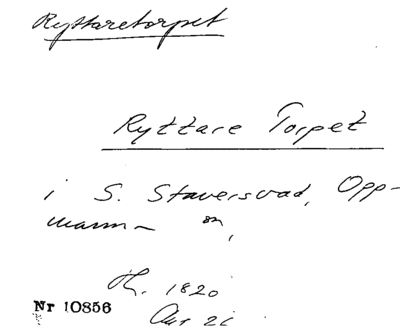 Ryttaretorpet
Ryttare Torpet
i S. Staversvad, Opp-
mann- sn,
Th. 1820
Akt 26
Nr 10856